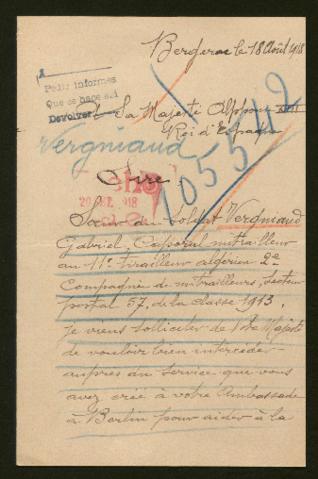 Bergerac le 18 Août 1918
Pedir informes
Que se hace así
Devolver
A Sa Majesté Alphonse XIII
Roi d'Espagne
Vergniaud
105542
Sire,
918
Soeur du Soldat Vergniaud
Gabriel, Caporal mitrailleur
au 11e tirailleur algérien 2e
Compagnie de mitrailleurs, secteur
postal 57, de la classe 1913,
je viens solliciter de Votre Majesté
de vouloir bien intercéder
auprès du service que vous
avez créé à votre Ambassade
à Berlin pour aider à la